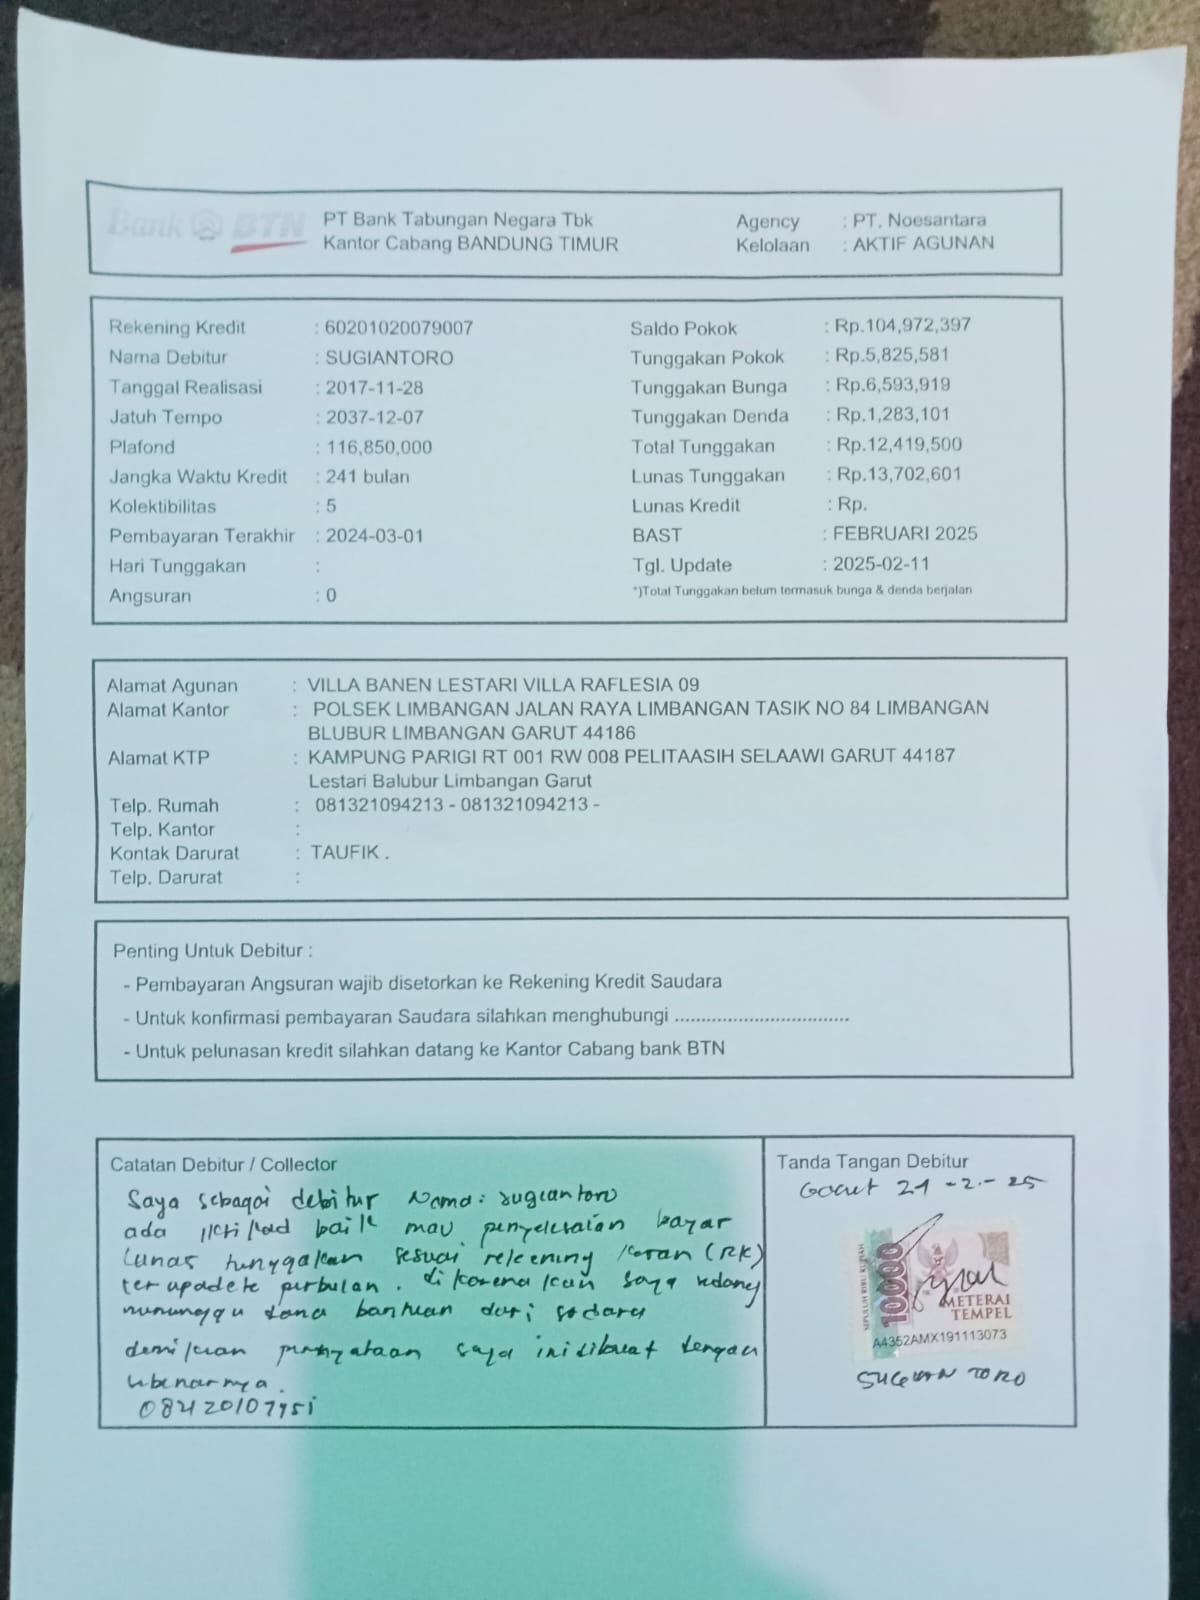 Bank BTN
PT Bank Tabungan Negara Tbk
Kantor Cabang BANDUNG TIMUR
Agency : PT. Noesantara
Kelolaan : AKTIF AGUNAN
Rekening Kredit : 60201020079007
Nama Debitur : SUGIANTORO
Tanggal Realisasi : 2017-11-28
Jatuh Tempo : 2037-12-07
Plafond : 116,850,000
Jangka Waktu Kredit : 241 bulan
Kolektibilitas : 5
Pembayaran Terakhir : 2024-03-01
Hari Tunggakan :
Angsuran : 0
Saldo Pokok : Rp.104,972,397
Tunggakan Pokok : Rp.5,825,581
Tunggakan Bunga : Rp.6,593,919
Tunggakan Denda : Rp.1,283,101
Total Tunggakan : Rp.12,419,500
Lunas Tunggakan : Rp.13,702,601
Lunas Kredit : Rp.
BAST : FEBRUARI 2025
Tgl. Update : 2025-02-11
*)Total Tunggakan belum termasuk bunga & denda berjalan
Alamat Agunan : VILLA BANEN LESTARI VILLA RAFLESIA 09
Alamat Kantor : POLSEK LIMBANGAN JALAN RAYA LIMBANGAN TASIK NO 84 LIMBANGAN
BLUBUR LIMBANGAN GARUT 44186
Alamat KTP : KAMPUNG PARIGI RT 001 RW 008 PELITAASIH SELAAWI GARUT 44187
Lestari Balubur Limbangan Garut
Telp. Rumah : 081321094213 - 081321094213 -
Telp. Kantor :
Kontak Darurat : TAUFIK .
Telp. Darurat :
Penting Untuk Debitur :
- Pembayaran Angsuran wajib disetorkan ke Rekening Kredit Saudara
- Untuk konfirmasi pembayaran Saudara silahkan menghubungi .................................
- Untuk pelunasan kredit silahkan datang ke Kantor Cabang bank BTN
Catatan Debitur / Collector
Saya sebagai debitur Nama: sugiantoro
ada baik mau penyelesaian bayar
Lunas tunggakan sesuai rekening koran (RK)
ter upadete perbulan. di karena kan saya sedang
menunggu dana bantuan dari sodara
demikian pernyataan saya ini dibuat dengan
sebenarnya.
Tanda Tangan Debitur
Garut 21-2-25
SEPULUH RIBU RUPIAH
10000
METERAI
TEMPEL
A4352AMX191113073
SUGIAN TORO